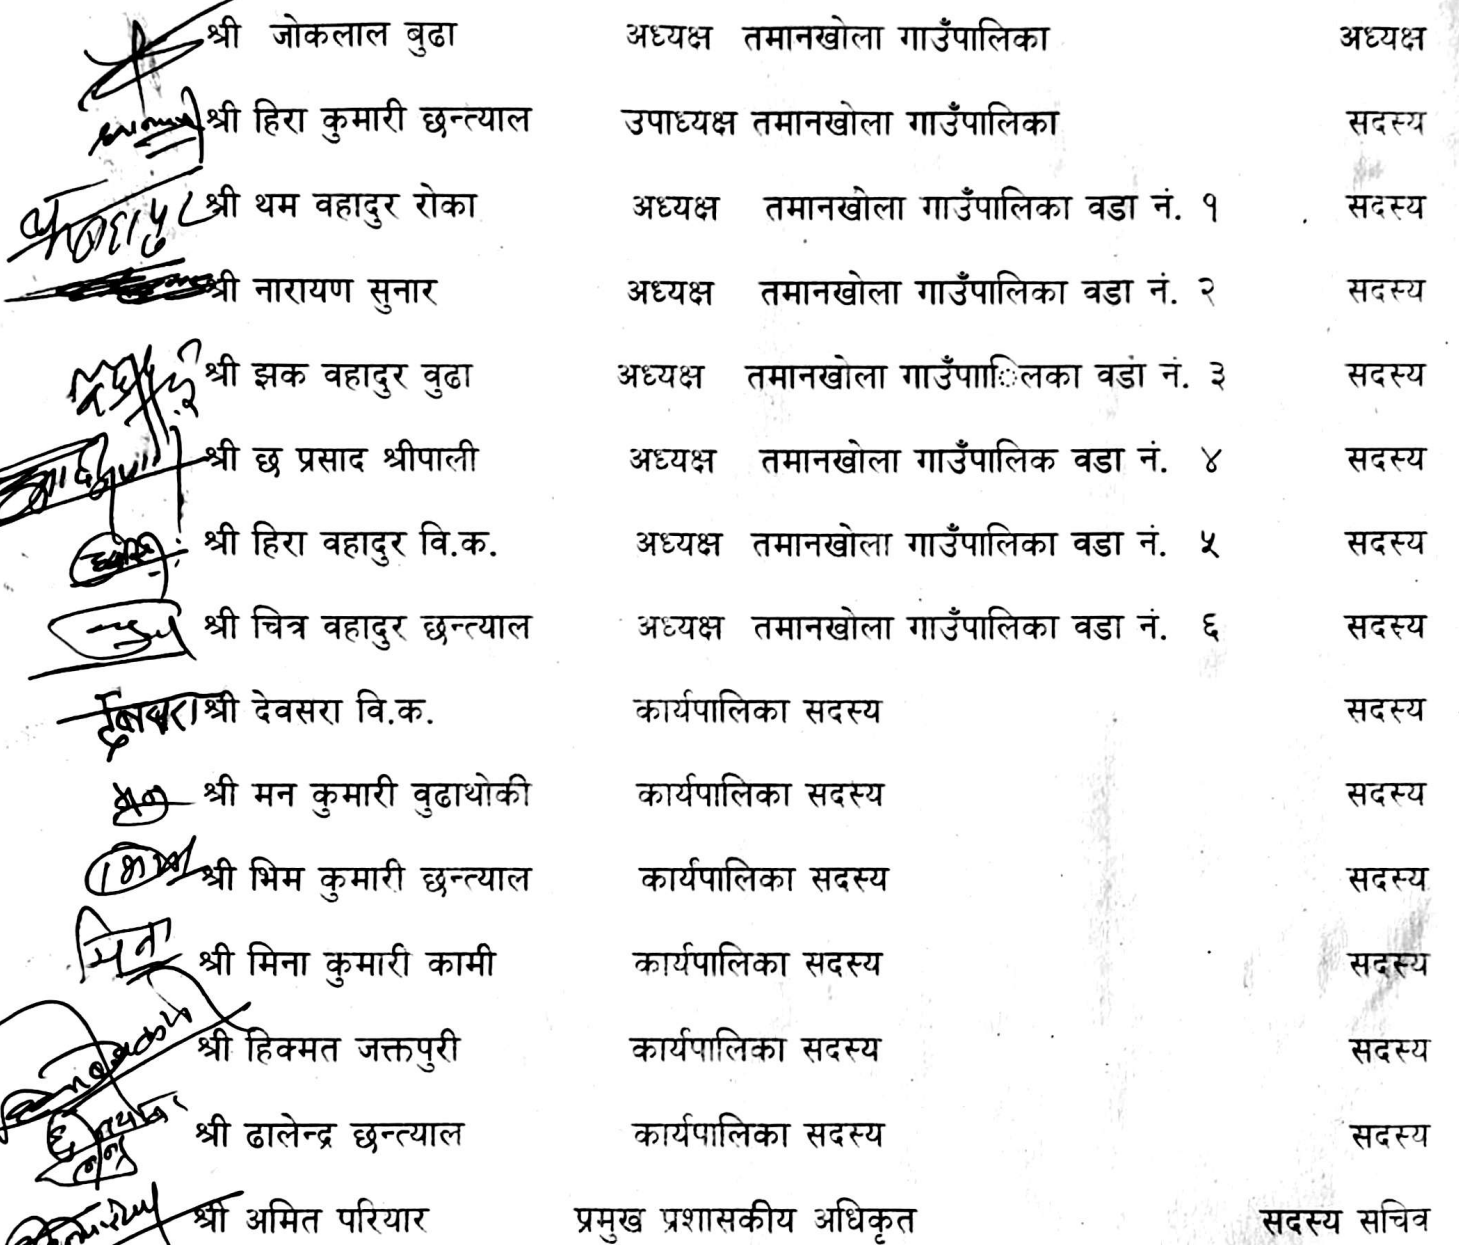 श्री जोकलाल बुढा अध्यक्ष तमानखोला गाउँपालिका अध्यक्ष
श्री हिरा कुमारी छन्त्याल उपाध्यक्ष तमानखोला गाउँपालिका सदस्य
श्री थम वहादुर रोका अध्यक्ष तमानखोला गाउँपालिका वडा नं. १ सदस्य
श्री नारायण सुनार अध्यक्ष तमानखोला गाउँपालिका वडा नं. २ सदस्य
श्री झक वहादुर वुढा अध्यक्ष तमानखोला गाउँपाािलका वडा नं. ३ सदस्य
श्री छ प्रसाद श्रीपाली अध्यक्ष तमानखोला गाउँपालिक वडा नं. ४ सदस्य
श्री हिरा वहादुर वि.क. अध्यक्ष तमानखोला गाउँपालिका वडा नं. ५ सदस्य
श्री चित्र वहादुर छन्त्याल अध्यक्ष तमानखोला गाउँपालिका वडा नं. ६ सदस्य
श्री देवसरा वि.क. कार्यपालिका सदस्य सदस्य
श्री मन कुमारी वुढाथोकी कार्यपालिका सदस्य सदस्य
श्री भिम कुमारी छन्त्याल कार्यपालिका सदस्य सदस्य
मिना श्री मिना कुमारी कामी कार्यपालिका सदस्य सदस्य
श्री हिक्मत जक्तपुरी कार्यपालिका सदस्य सदस्य
श्री ढालेन्द्र छन्त्याल कार्यपालिका सदस्य सदस्य
श्री अमित परियार प्रमुख प्रशासकीय अधिकृत सदस्य सचिव